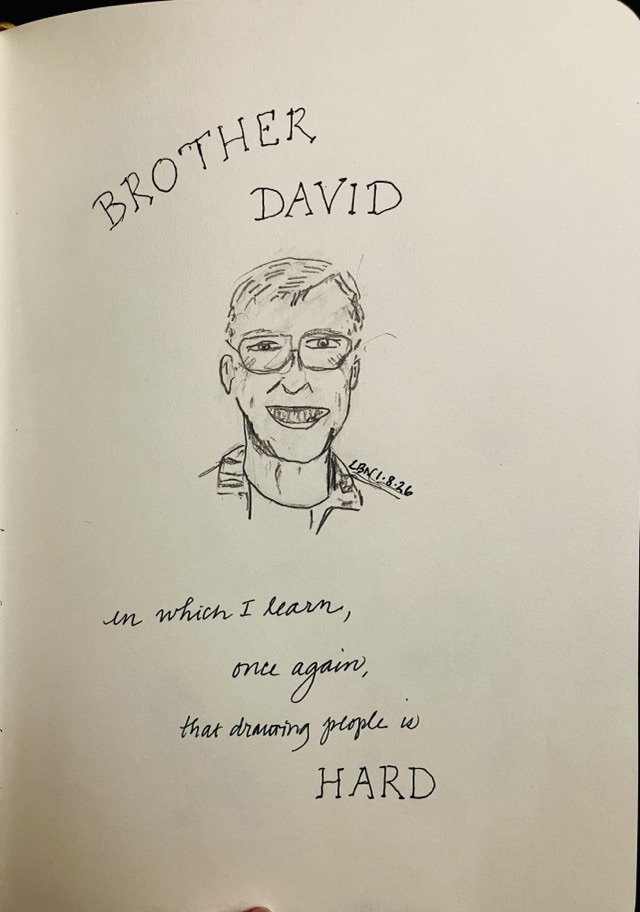 BROTHER
DAVID
LBN 1.8.26
in which I learn,
once again,
that drawing people is
HARD